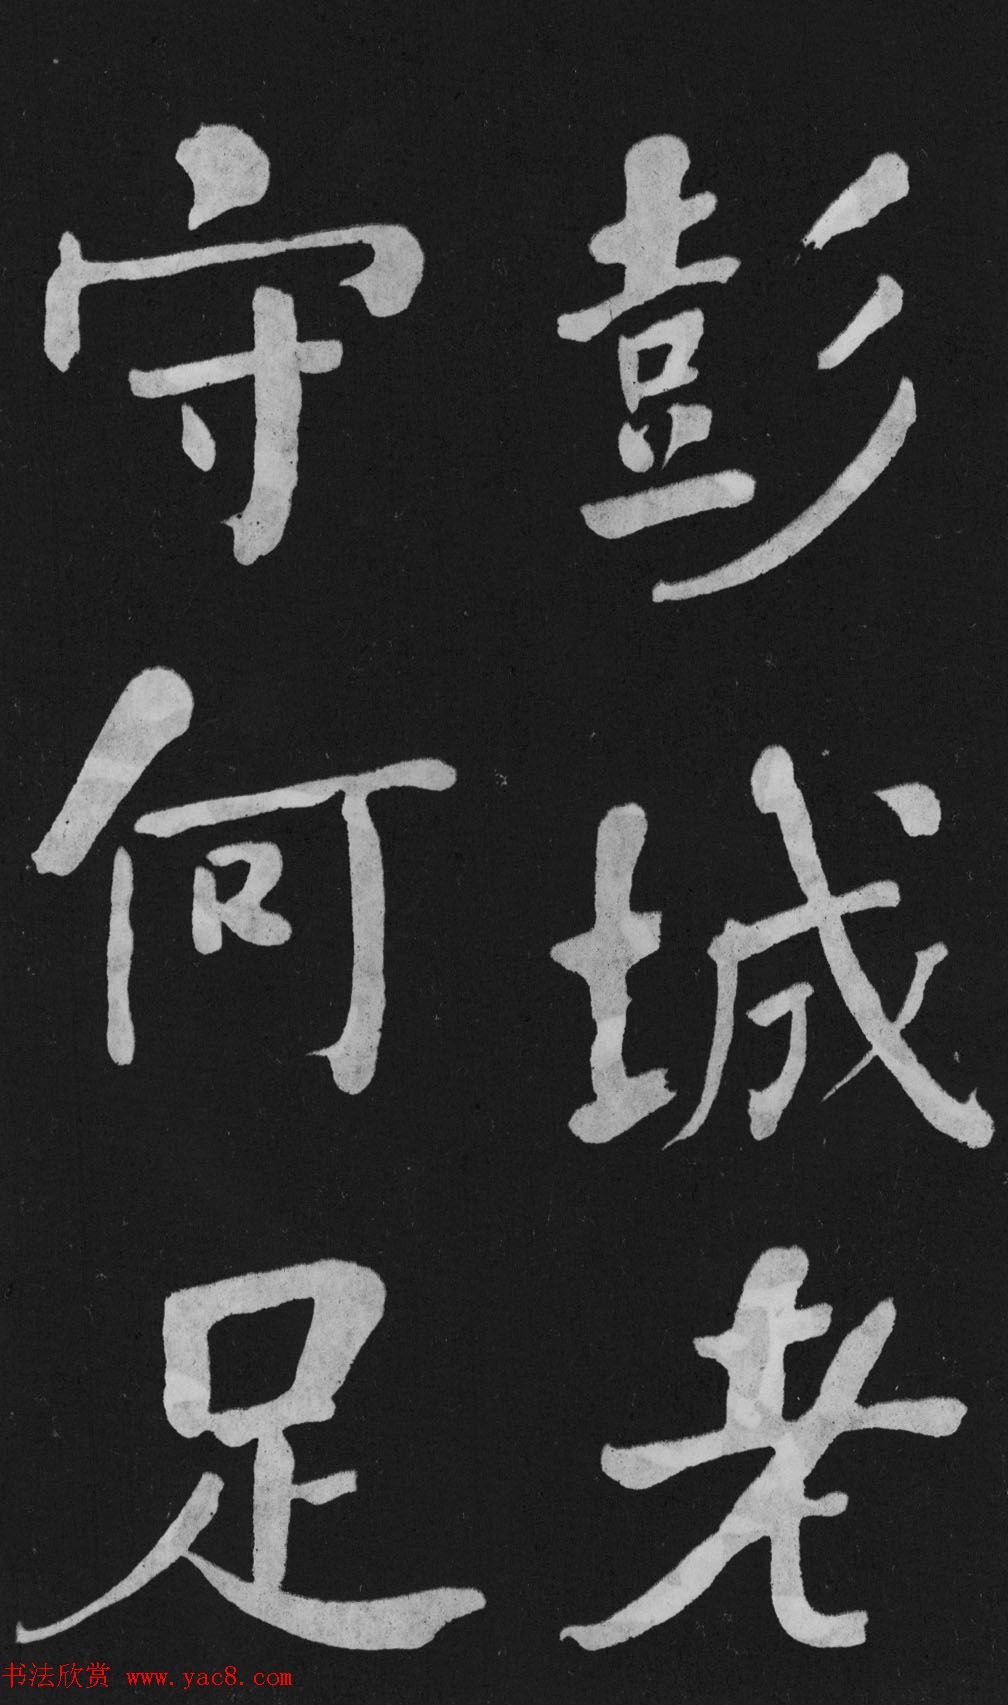 彭城老
守何足
书法欣赏 www.yac8.com